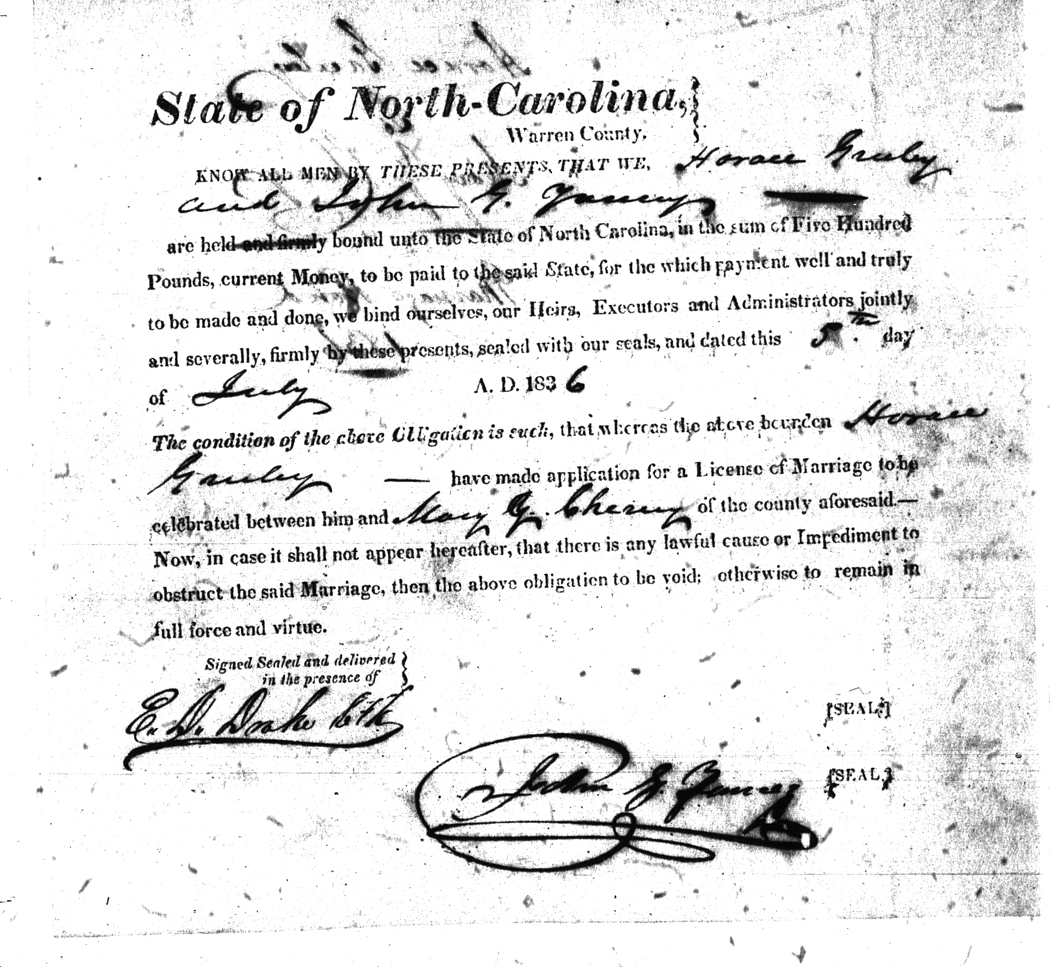 State of North-Carolina,
Warren County.
KNOW ALL MEN BY THESE PRESENTS, THAT WE, Horace Greeley
and John G. Yancey
are held and firmly bound unto the State of North Carolina, in the sum of Five Hundred
Pounds, current Money, to be paid to the said State, for the which payment well and truly
to be made and done, we bind ourselves, our Heirs, Executors and Administrators jointly
and severally, firmly by these presents, sealed with our seals, and dated this 5th. day
of July A. D. 1836
The condition of the above Obligation is such, that whereas the above bounden Horace
Greeley — have made application for a License of Marriage to be
celebrated between him and Mary Y. Cheney of the county aforesaid.—
Now, in case it shall not appear hereafter, that there is any lawful cause or Impediment to
obstruct the said Marriage, then the above obligation to be void; otherwise to remain in
full force and virtue.
Signed Sealed and delivered
in the presence of
E. D. Drake Clk
[SEAL]
John G. Yancey [SEAL]